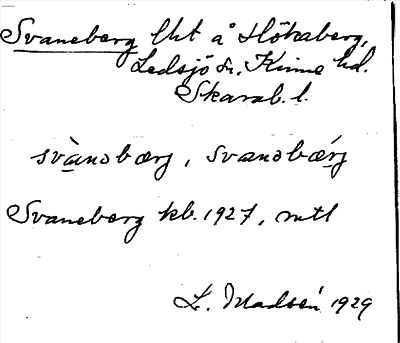 Svaneberg lht å Hökaberg,
Ledsjö sn, Kinne hd.
Skarab. l.
svànəbærg, svanəbǽrg
Svaneberg kb. 1927, mtl
L. Madsén 1929